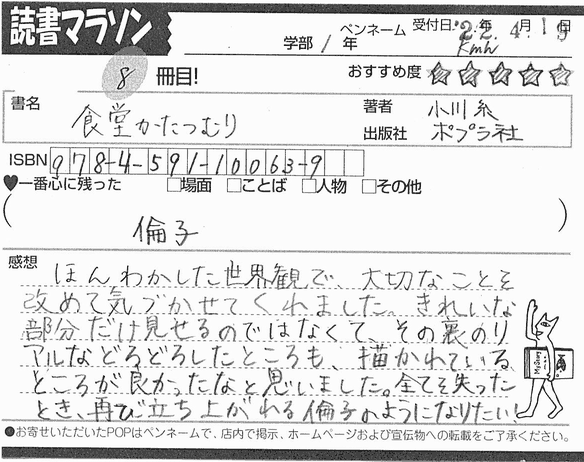 読書マラソン
学部/ 年
ペンネーム Kmh
受付日:'22年4月19日
8 冊目!
おすすめ度 ☆☆☆☆☆
書名 食堂かたつむり
著者 小川糸
出版社 ポプラ社
ISBN 978-4-591-10063-9
♥一番心に残った □場面 □ことば □人物 □その他
( 倫子 )
感想
ほんわかした世界観で、大切なことを
改めて気づかせてくれました。きれいな
部分だけ見せるのではなくて、その裏のリ
アルなどろどろしたところも、描かれている
ところが良かったなと思いました。全てを失った
とき、再び立ち上がれる倫子のようになりたい!
●お寄せいただいたPOPはペンネームで、店内で掲示、ホームページおよび宣伝物への転載をご了承ください。